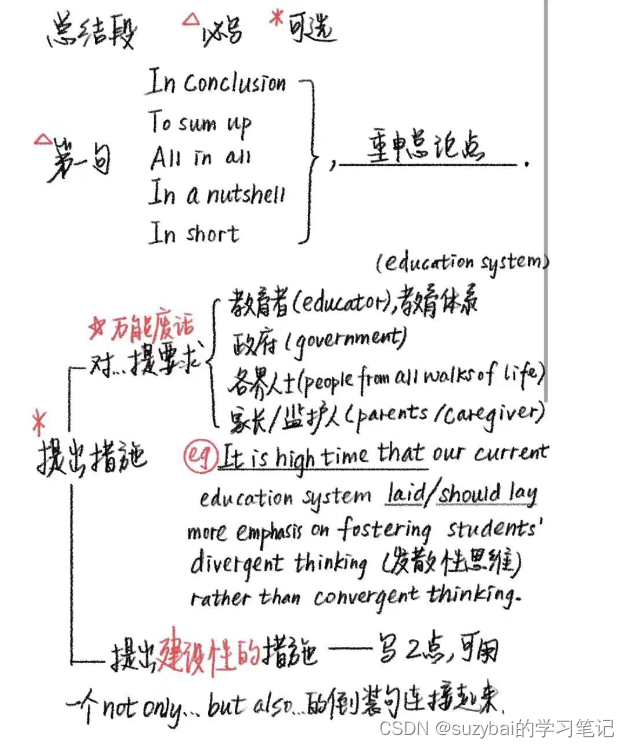 总结段 △必写 *可选
In Conclusion
To sum up
△第一句 All in all ,重申总论点.
In a nutshell
In short
(education system)
☆万能废话 教育者(educator),教育体系
对...提要求 政府(government)
各界人士(people from all walks of life)
家长/监护人(parents/caregiver)
*
提出措施 eg It is high time that our current
education system laid/should lay
more emphasis on fostering students'
divergent thinking (发散性思维)
rather than convergent thinking.
提出建设性的措施——写2点,可用
一个not only...but also...的倒装句连接起来.
CSDN @suzybai的学习笔记